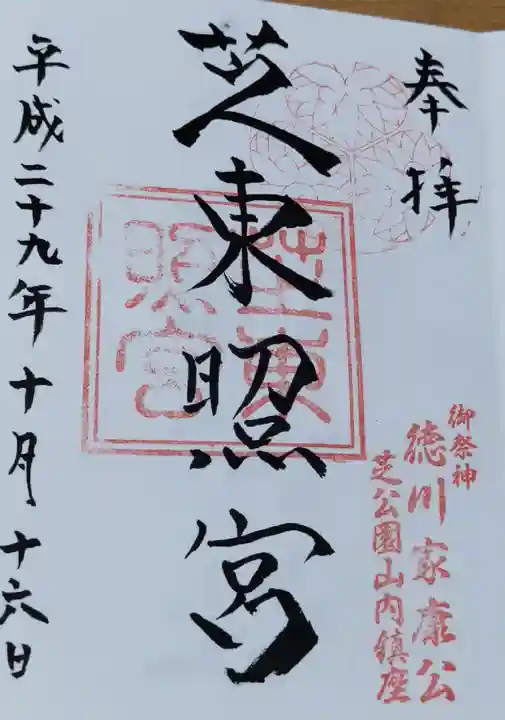 奉拝
御祭神
徳川家康公
芝公園山内鎮座
芝東照宮
芝東
照宮
平成二十九年十月十六日